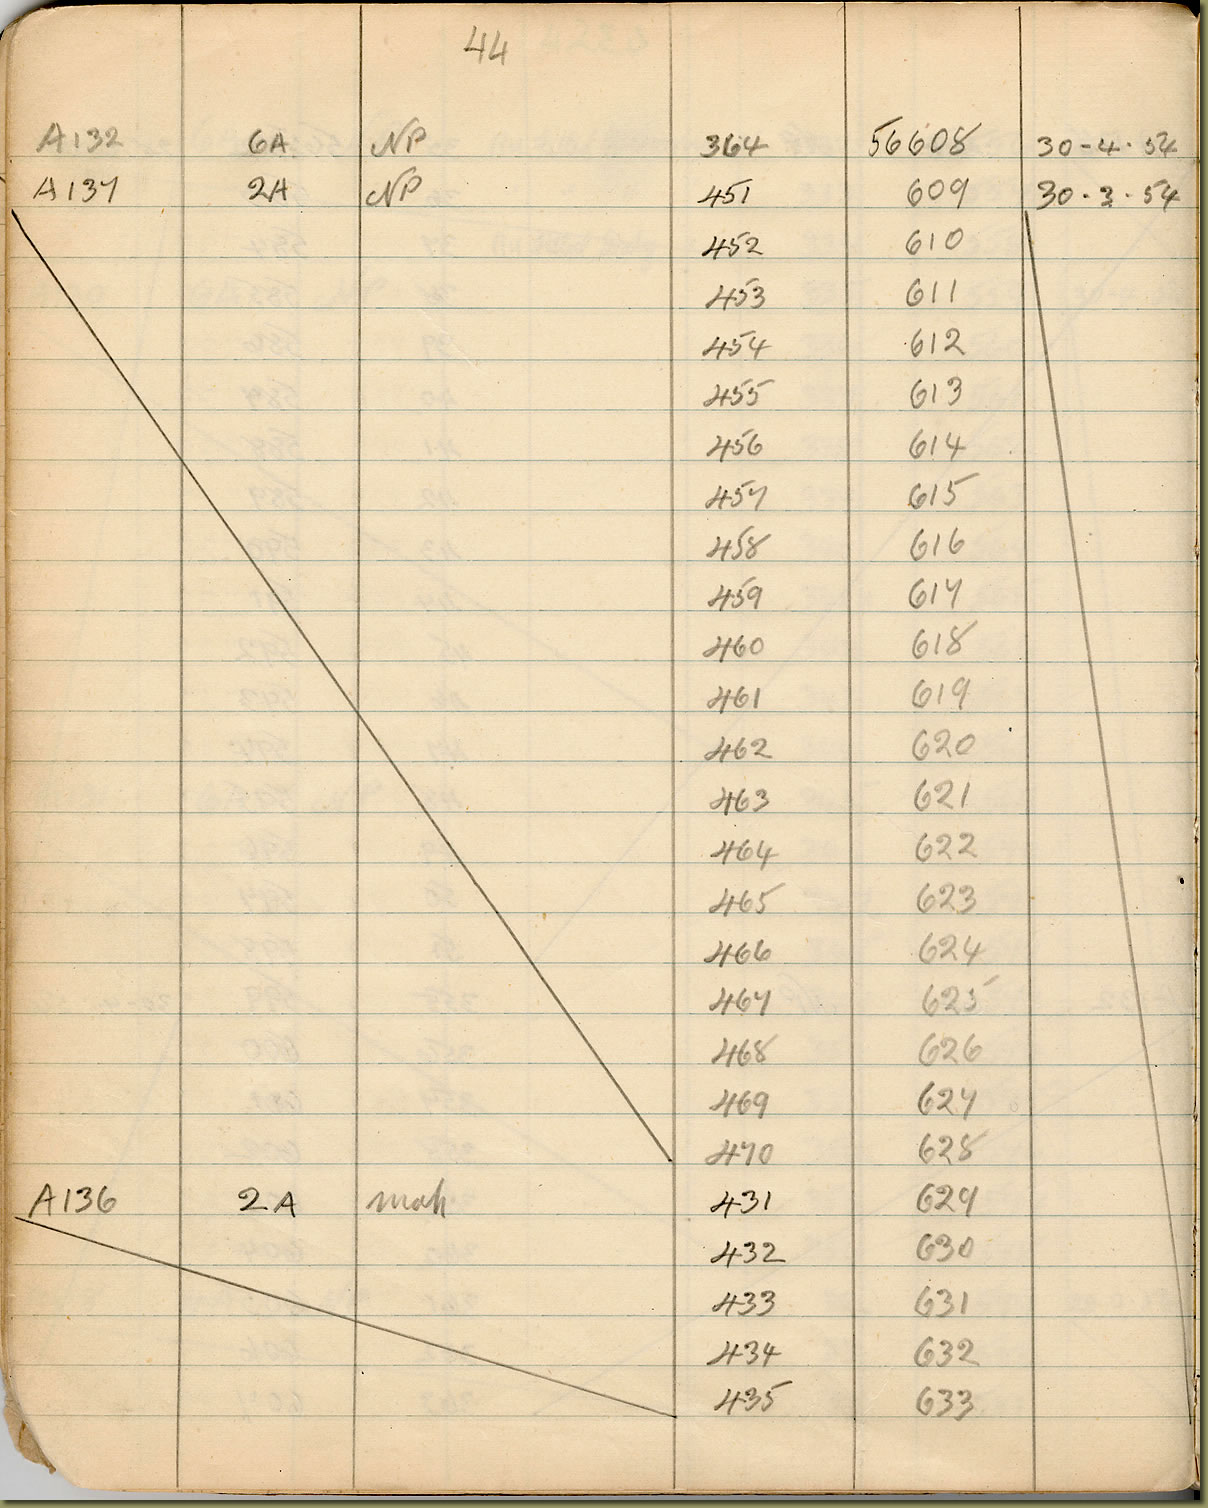 44
A132 6A NP 364 56608 30-4-54
A137 2A NP 451 609 30-3-54
452 610
453 611
454 612
455 613
456 614
457 615
458 616
459 617
460 618
461 619
462 620
463 621
464 622
465 623
466 624
467 625
468 626
469 627
470 628
A136 2A mah 431 629
432 630
433 631
434 632
435 633